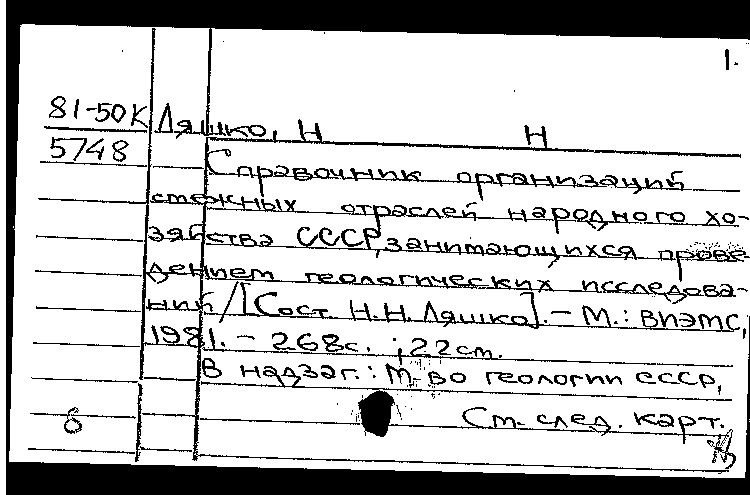 1.
81-50К Ляшко, Н Н
5748 Справочник организаций
смежных отраслей народного хо-
зяйства СССР, занимающихся прове-
дением геологических исследова-
ний / [Сост. Н.Н. Ляшко]. - М.: ВИЭМС,
1981. - 268с. ; 22см.
В надзаг.: М-во геологии СССР,
См. след. карт.